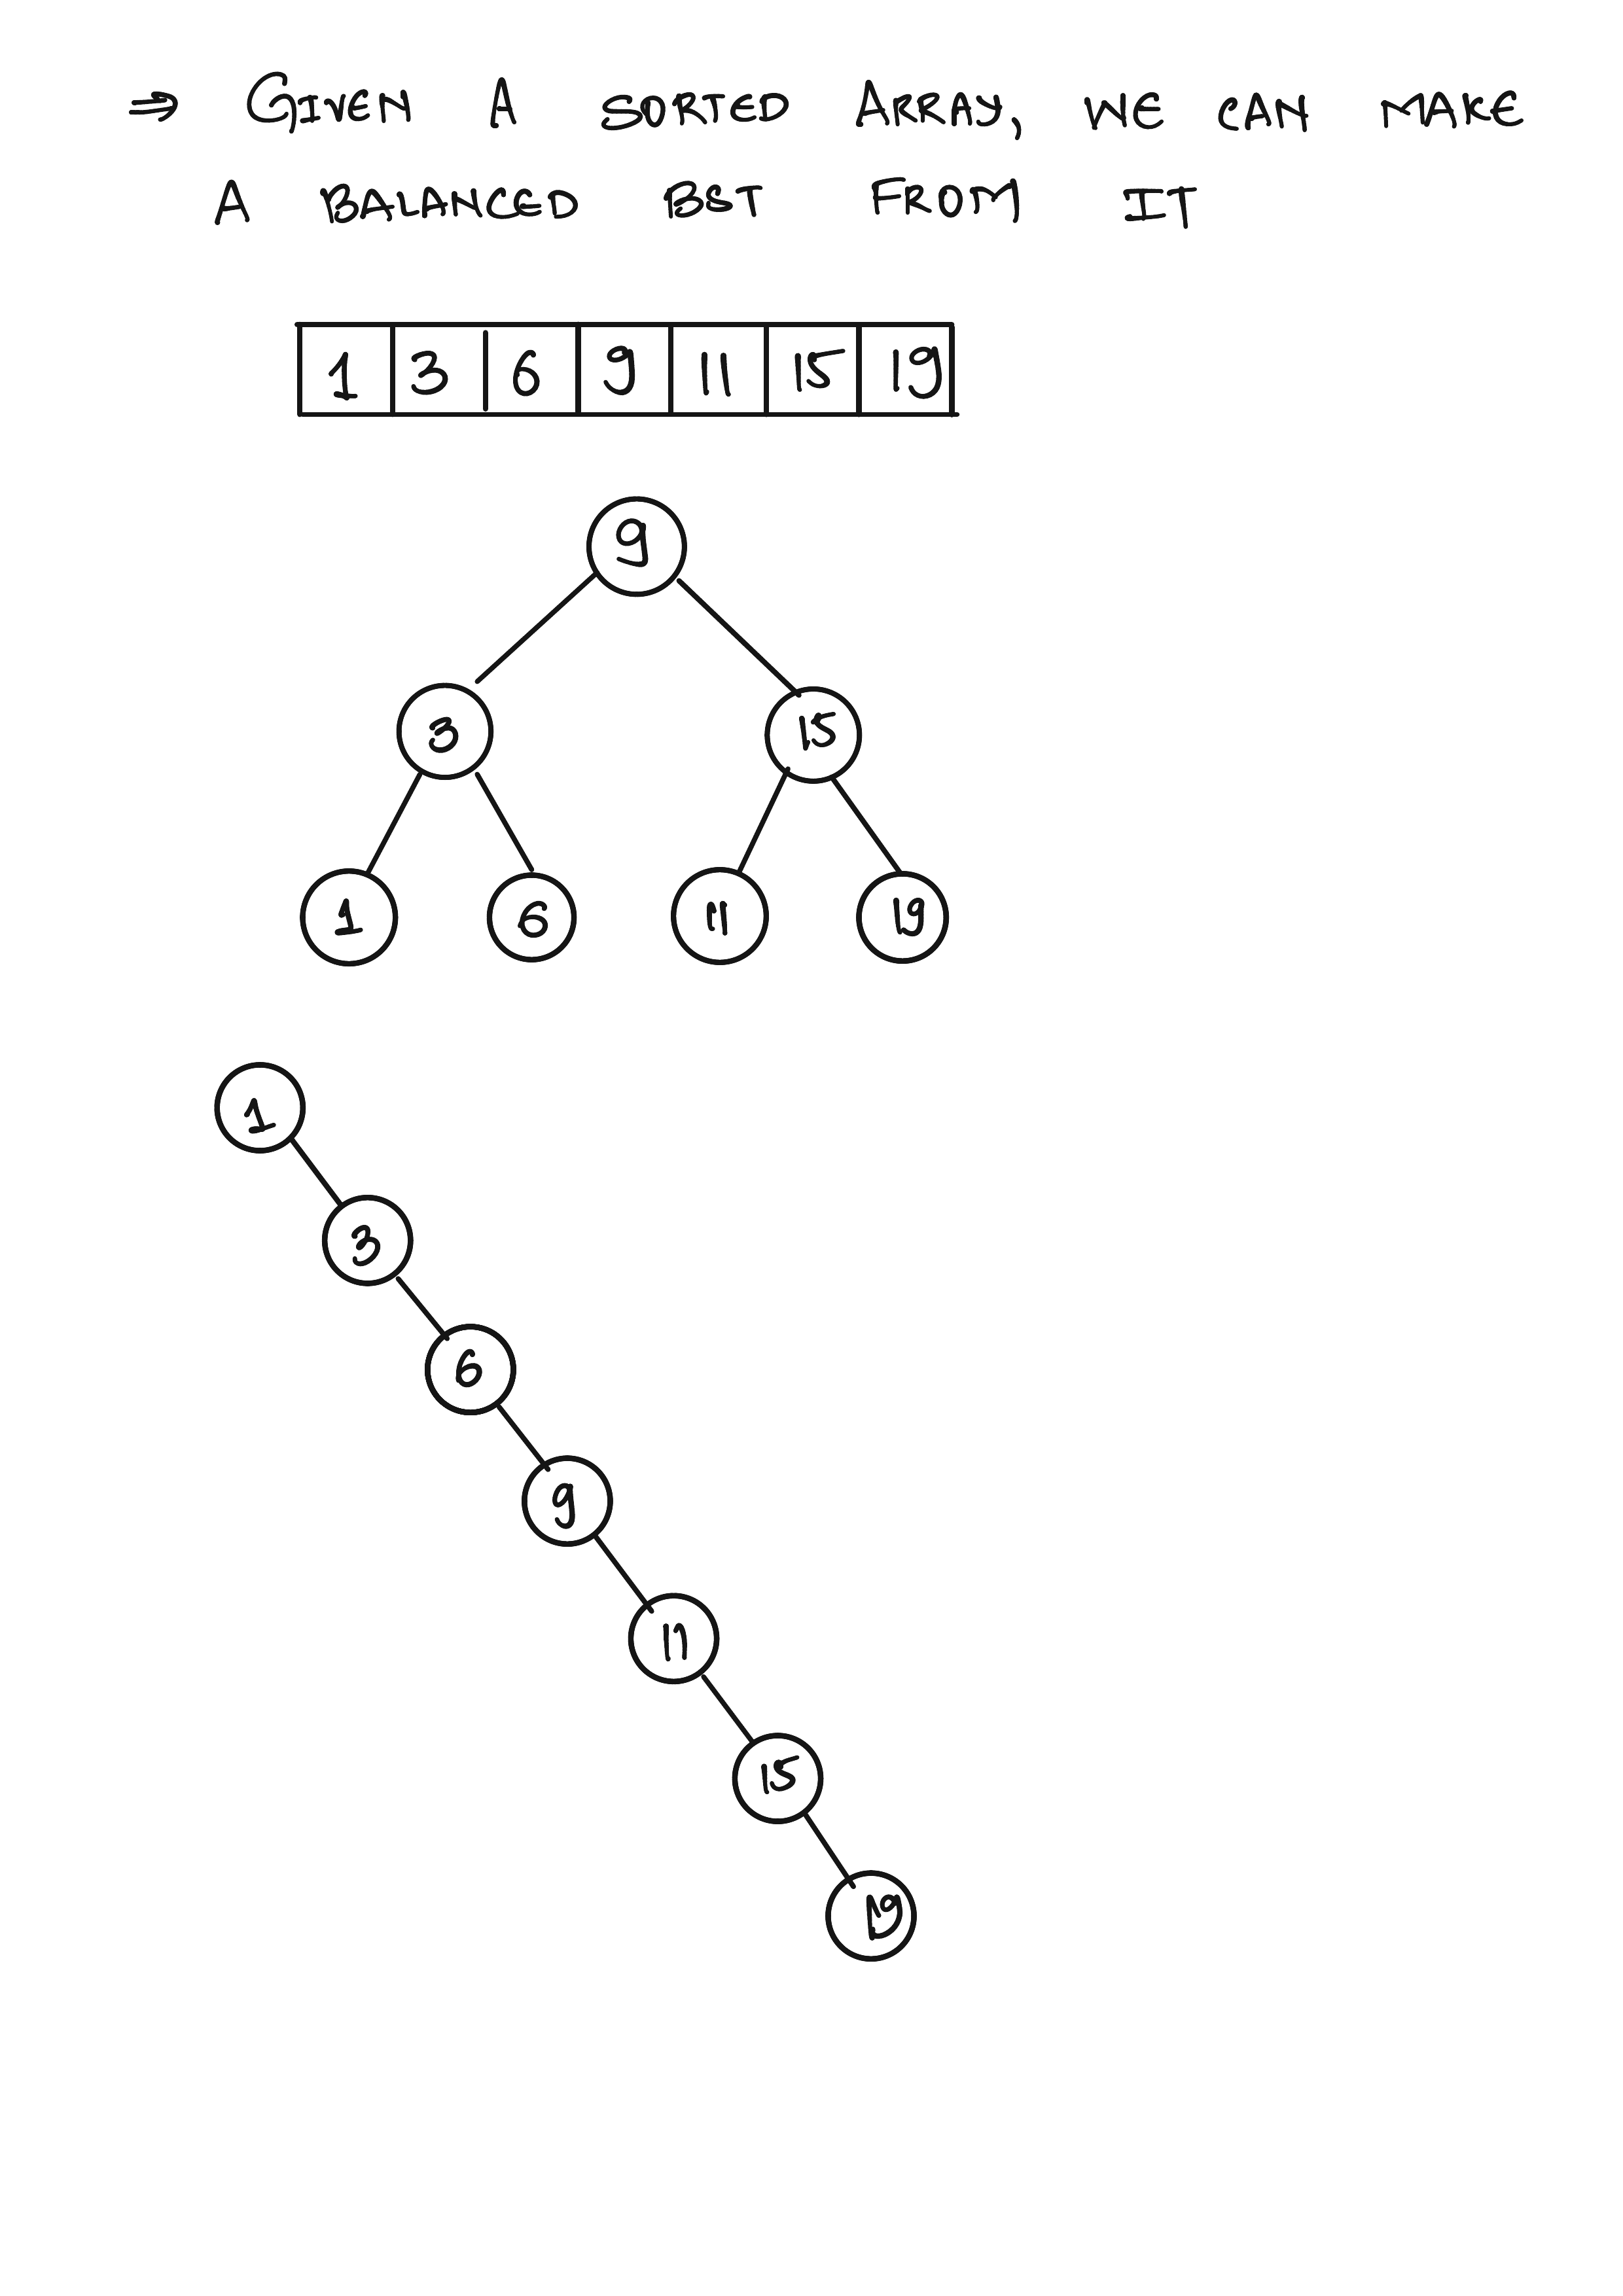 ⇒ GIVEN A SORTED ARRAY, WE CAN MAKE
A BALANCED BST FROM IT
1 3 6 9 11 15 19
9
3 15
1 6 11 19
1
3
6
9
11
15
19